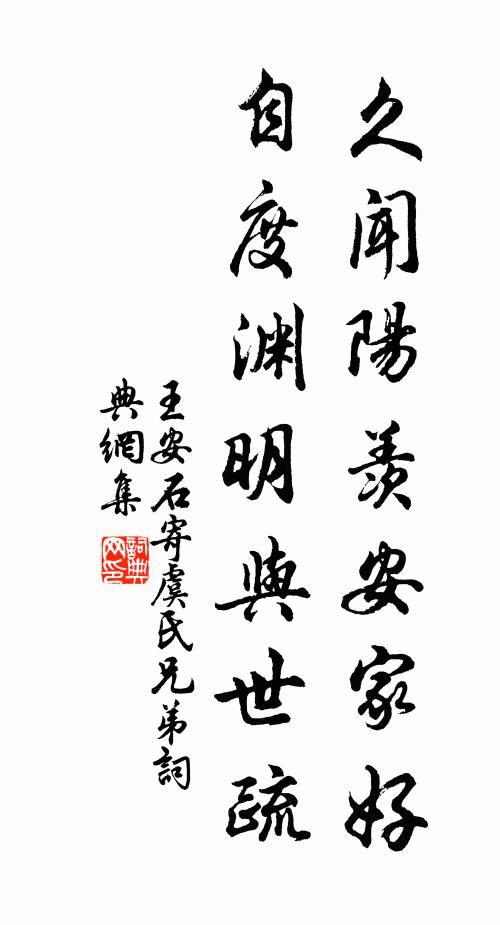 久聞陽羨安家好
自度淵明與世疏
王安石寄虞氏兄弟詞
典網集
詞典網印